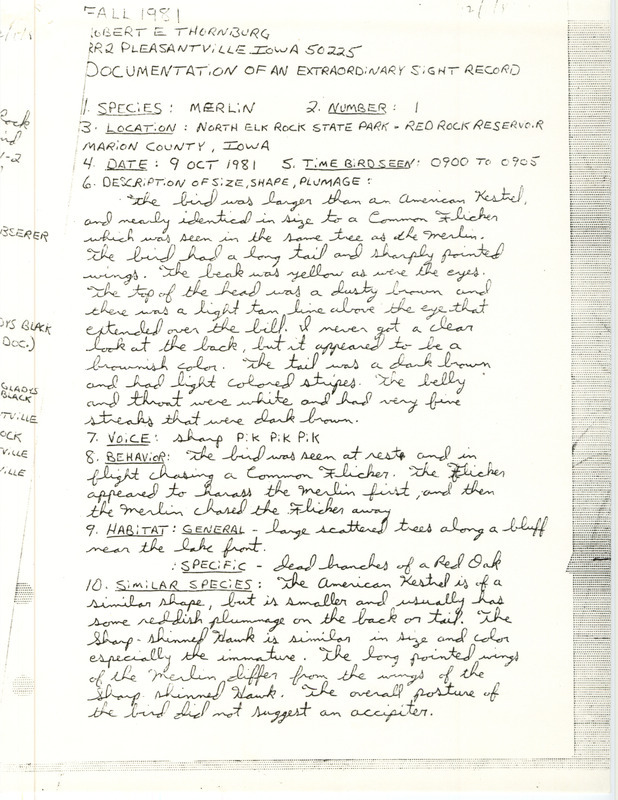 FALL 1981
ROBERT E THORNBURG
RR2 PLEASANTVILLE IOWA 50225
DOCUMENTATION OF AN EXTRAORDINARY SIGHT RECORD
1. SPECIES: MERLIN 2. NUMBER: 1
3. LOCATION: NORTH ELK ROCK STATE PARK - RED ROCK RESERVOIR
MARION COUNTY, IOWA
4. DATE: 9 OCT 1981 5. TIME BIRD SEEN: 0900 TO 0905
6. DESCRIPTION OF SIZE, SHAPE, PLUMAGE:
The bird was larger than an American Kestrel,
and nearly identical in size to a Common Flicker
which was seen in the same tree as the Merlin.
The bird had a long tail and sharply pointed
wings. The beak was yellow as were the eyes.
The top of the head was a dusty brown and
there was a light tan line above the eye that
extended over the bill. I never got a clear
look at the back, but it appeared to be a
brownish color. The tail was a dark brown
and had light colored stripes. The belly
and throat were white and had very fine
streaks that were dark brown.
7. VOICE: sharp PiK PiK PiK
8. BEHAVIOR: The bird was seen at rest and in
flight chasing a Common Flicker. The Flicker
appeared to harass the Merlin first, and then
the Merlin chased the Flicker away
9. HABITAT: GENERAL - large scattered trees along a bluff
near the lake front.
: SPECIFIC - dead branches of a Red Oak
10. SIMILAR SPECIES: The American Kestrel is of a
similar shape, but is smaller and usually has
some reddish plummage on the back or tail. The
Sharp-shinned Hawk is similar in size and color
especially the immature. The long pointed wings
of the Merlin differ from the wings of the
Sharp shinned Hawk. The overall posture of
the bird did not suggest an accipiter.
Rock
1-2
BSERER
DYS BLACK
DOC.)
GLADYS
BLACK
TVILLE
OCK
VILLE
VILLE